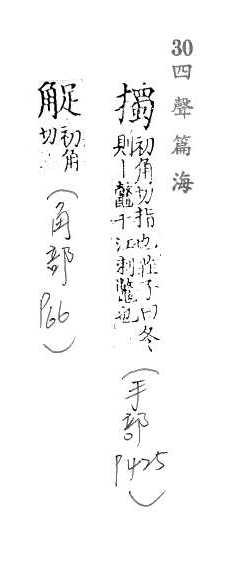 30四聲篇海
擉
初角切指也莊子曰冬
則丨鼈于江刺鼈也
(手部P425)
初角
切
(角部P66)